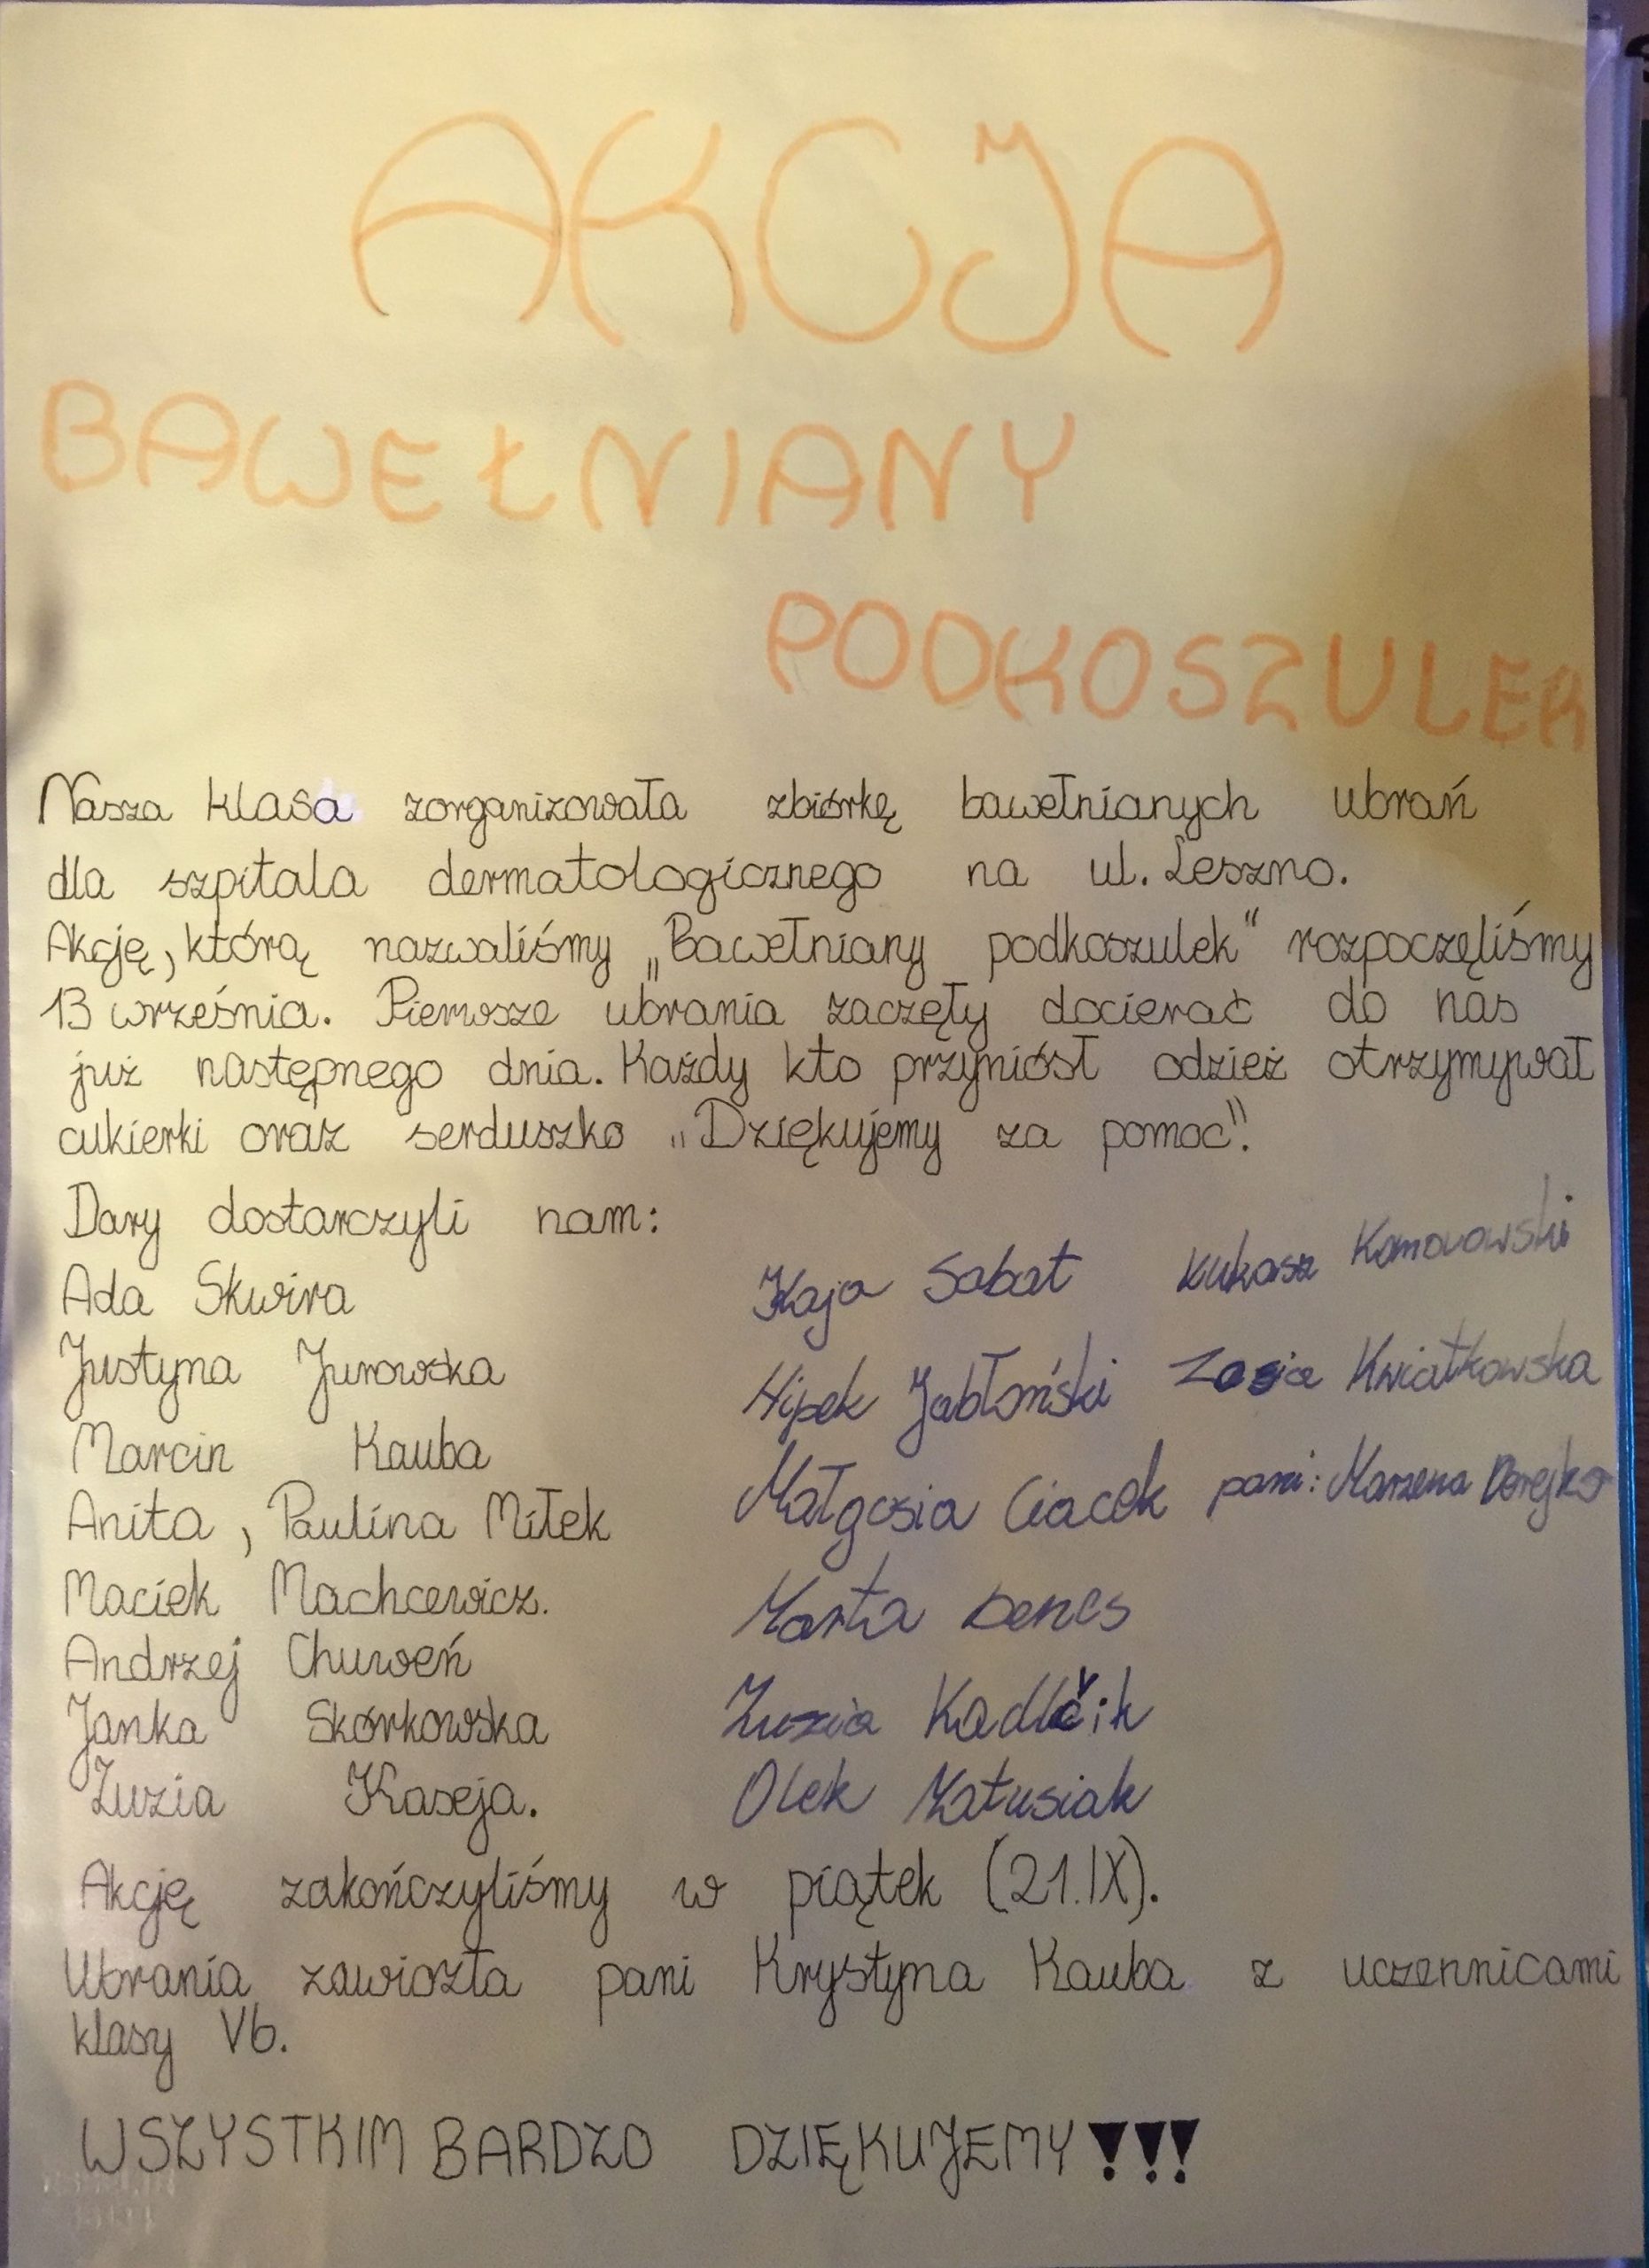 AKCJA
BAWEŁNIANY
PODKOSZULEK
Nasza klasa zorganizowała zbiórkę bawełnianych ubrań
dla szpitala dermatologicznego na ul. Leszno.
Akcję, którą nazwaliśmy „Bawełniany podkoszulek" rozpoczęliśmy
13 września. Pierwsze ubrania zaczęły docierać do nas
już następnego dnia. Każdy kto przyniósł odzież otrzymywał
cukierki oraz serduszko „Dziękujemy za pomoc".
Dary dostarczyli nam:
Ada Skwira
Justyna Jurowska
Marcin Kauba
Anita, Paulina Miłek
Maciek Machcewicz.
Andrzej Chuweń
Janka Skórkowska
Zuzia Kaseja.
Kaja Sabat
Hipek Jabłoński
Małgosia Ciacek
Marta Dencs
Zuzia Kadlčik
Olek Matusiak
Łukasz Komorowski
Zosia Kwiatkowska
pani: Marzena
Akcję zakończyliśmy w piątek (21.IX).
Ubrania zawiozła pani Krystyna Kauba z uczennicami
klasy Vb.
WSZYSTKIM BARDZO DZIĘKUJEMY!!!